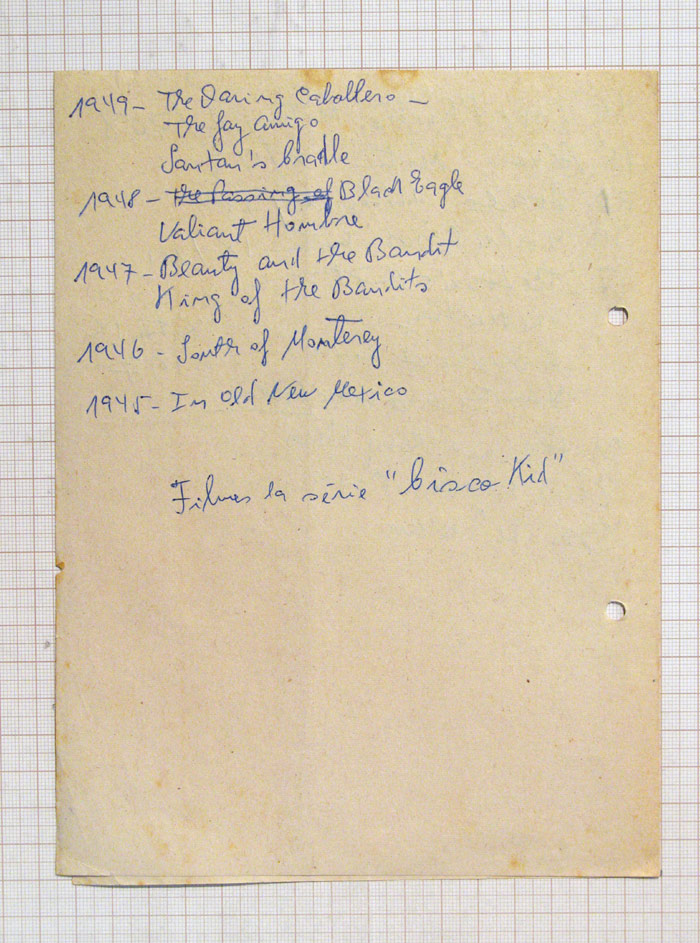 1949 - The Daring Caballero -
The Gay Amigo
Santan's Cradle
1948 - The Passing of Black Eagle
Valiant Hombre
1947 - Beauty and the Bandit
King of the Bandits
1946 - South of Monterey
1945 - In Old New Mexico
Filmes la série "Cisco Kid"